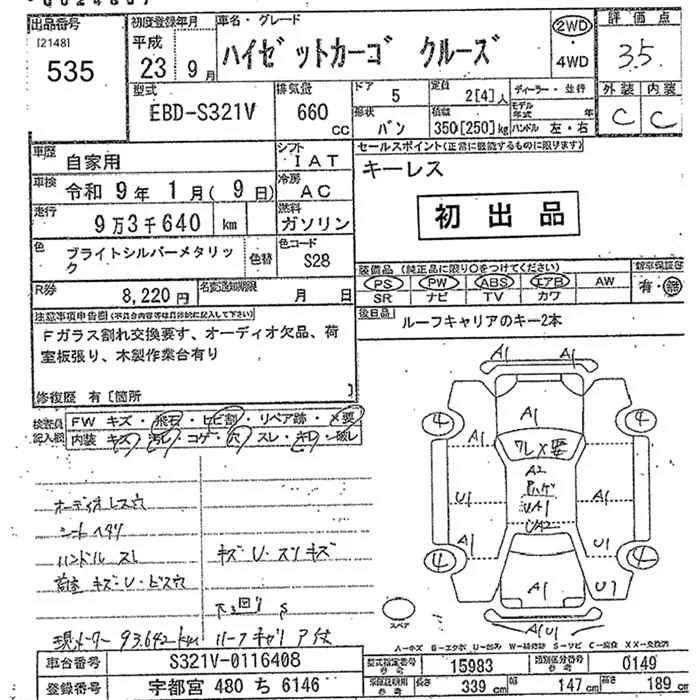 出品番号
[2148]
535
初度登録年月
平成
23年9月
車名・グレード
ハイゼットカーゴ クルーズ
2WD
・
4WD
評価点
3.5
外装 内装
C C
型式
EBD-S321V
排気量
660
CC
ドア
5
定員
2[4]人
形状
バン
積載
350[250]kg
ディーラー・並行
モデル
年式 年
ハンドル 左・右
車歴
自家用
シフト
IAT
車検
令和9年1月(9日)
冷房
AC
走行
9万3千640 km
燃料
ガソリン
色
ブライトシルバーメタリッ
ク
色替
色コード
S28
R券
8,220円
名変通知期限
月 日
セールスポイント(正常に機能するものに限ります)
キーレス
初出品
装備品(純正品に限り○をつけてください)
新車保証書
PS PW ABS エアB AW
SR ナビ TV カワ
有・無
後日品
ルーフキャリアのキー2本
注意事項申告欄(不具合内容等は具体的に記入して下さい)
Fガラス割れ交換要す、オーディオ欠品、荷
室板張り、木製作業台有り
修復歴 有〔箇所 〕
検査員
記入欄
FW キズ・飛石・ヒビ割・リペア跡・X要
内装 キズ・汚レ・コゲ・穴・スレ・キレ・破レ
オーディオレス穴
シートヘタリ
ハンドルスレ
荷室 キズ・U・ビス穴
キズ U・スリキズ
下回り S
現メーター 93,642km
ルーフキャリア付
A1 A1
A1
4 4
フレX要
A2
U1
A1
UA1
UA2
A1
A1
U1
4 4
A1
AU1
スペア
A-キズ B-エクボ U-凹み W-補修跡 S-サビ C-腐食 XX-交換済
車台番号
S321V-0116408
型式指定番号
参考
15983
類別区分番号
参考
0149
登録番号
宇都宮 480 ち 6146
車庫証明用
参考
長さ
339 cm
幅
147 cm
高さ
189 cm